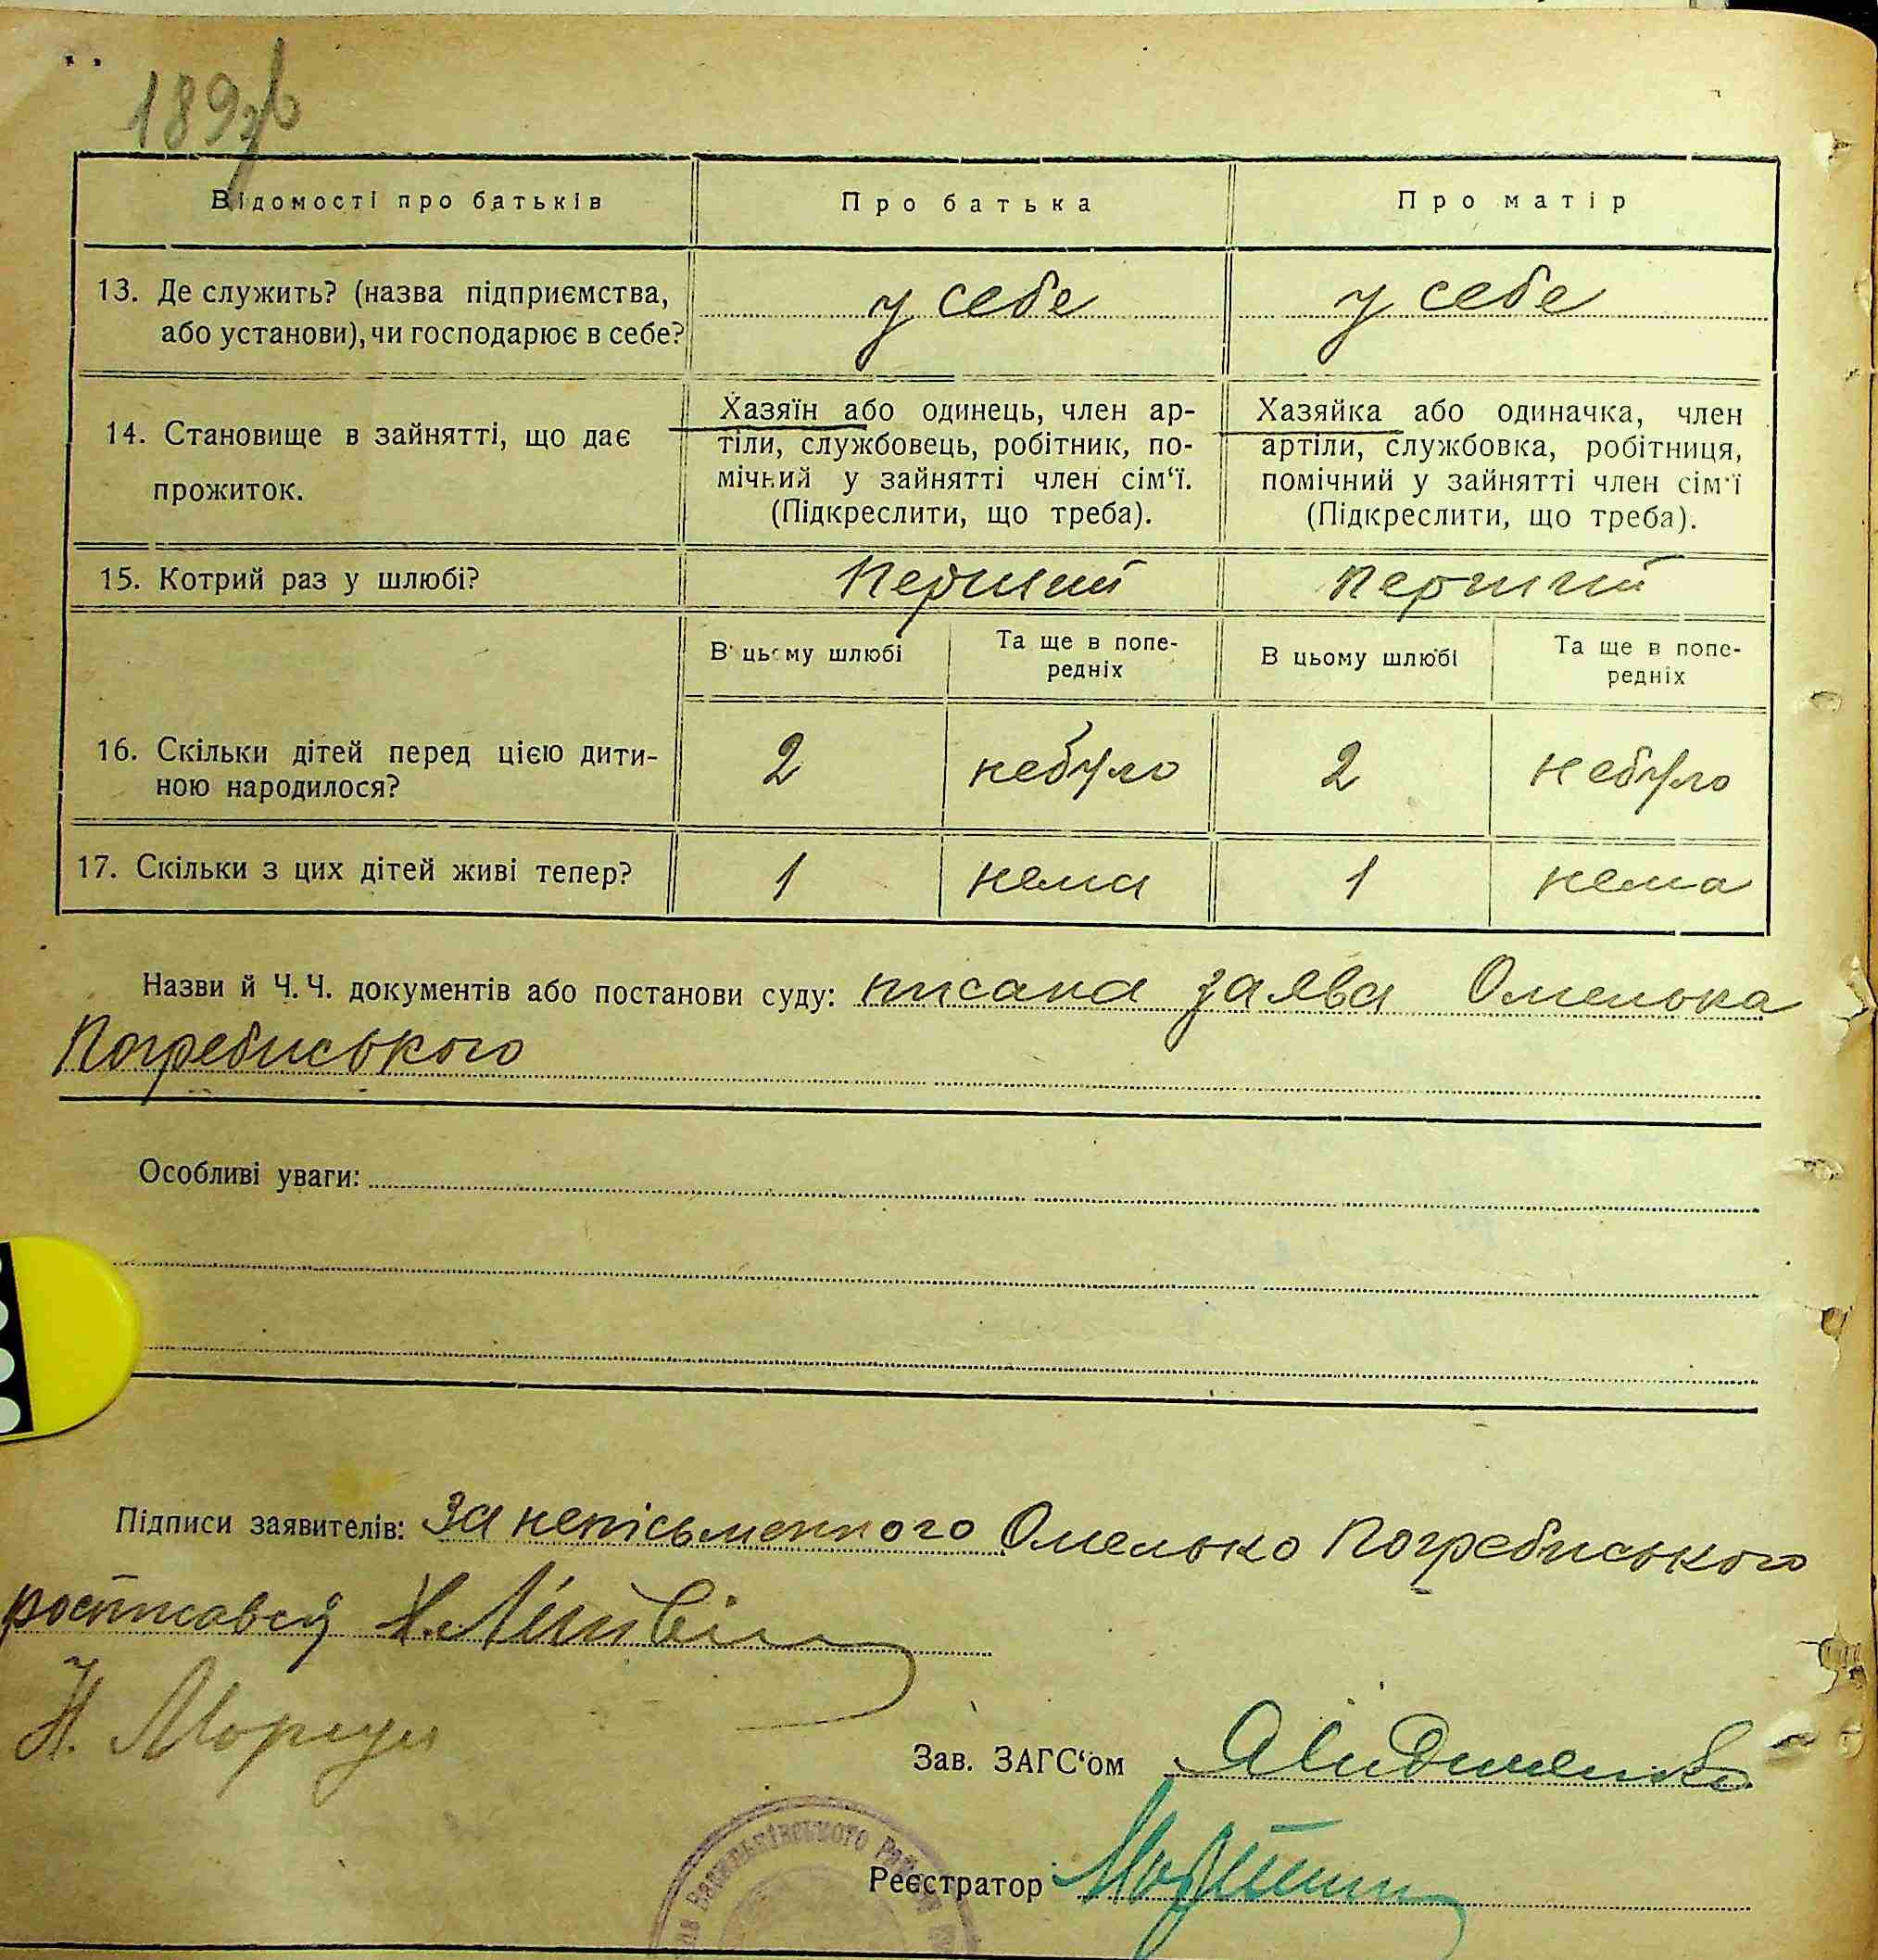 189 зв
Відомості про батьків
Про батька
Про матір
13. Де служить? (назва підприємства,
або установи), чи господарює в себе?
у себе
у себе
14. Становище в зайнятті, що дає
прожиток.
Хазяїн або одинець, член ар-
тіли, службовець, робітник, по-
мічний у зайнятті член сім‘ї.
(Підкреслити, що треба).
Хазяйка або одиначка, член
артіли, службовка, робітниця,
помічний у зайнятті член сім‘ї
(Підкреслити, що треба).
15. Котрий раз у шлюбі?
перший
перший
В цьому шлюбі
Та ще в попе-
редніх
В цьому шлюбі
Та ще в попе-
редніх
16. Скільки дітей перед цією дити-
ною народилося?
2
небуло
2
небуло
17. Скільки з цих дітей живі тепер?
1
нема
1
нема
Назви й Ч. Ч. документів або постанови суду: писана заява Омелька
Погребиського
Особливі уваги:
Підписи заявителів: За неписьменного Омелько Погребиського
росписався Н. Литвин
Н.
Зав. ЗАГС‘ом
Реєстратор
Васильківського Рай